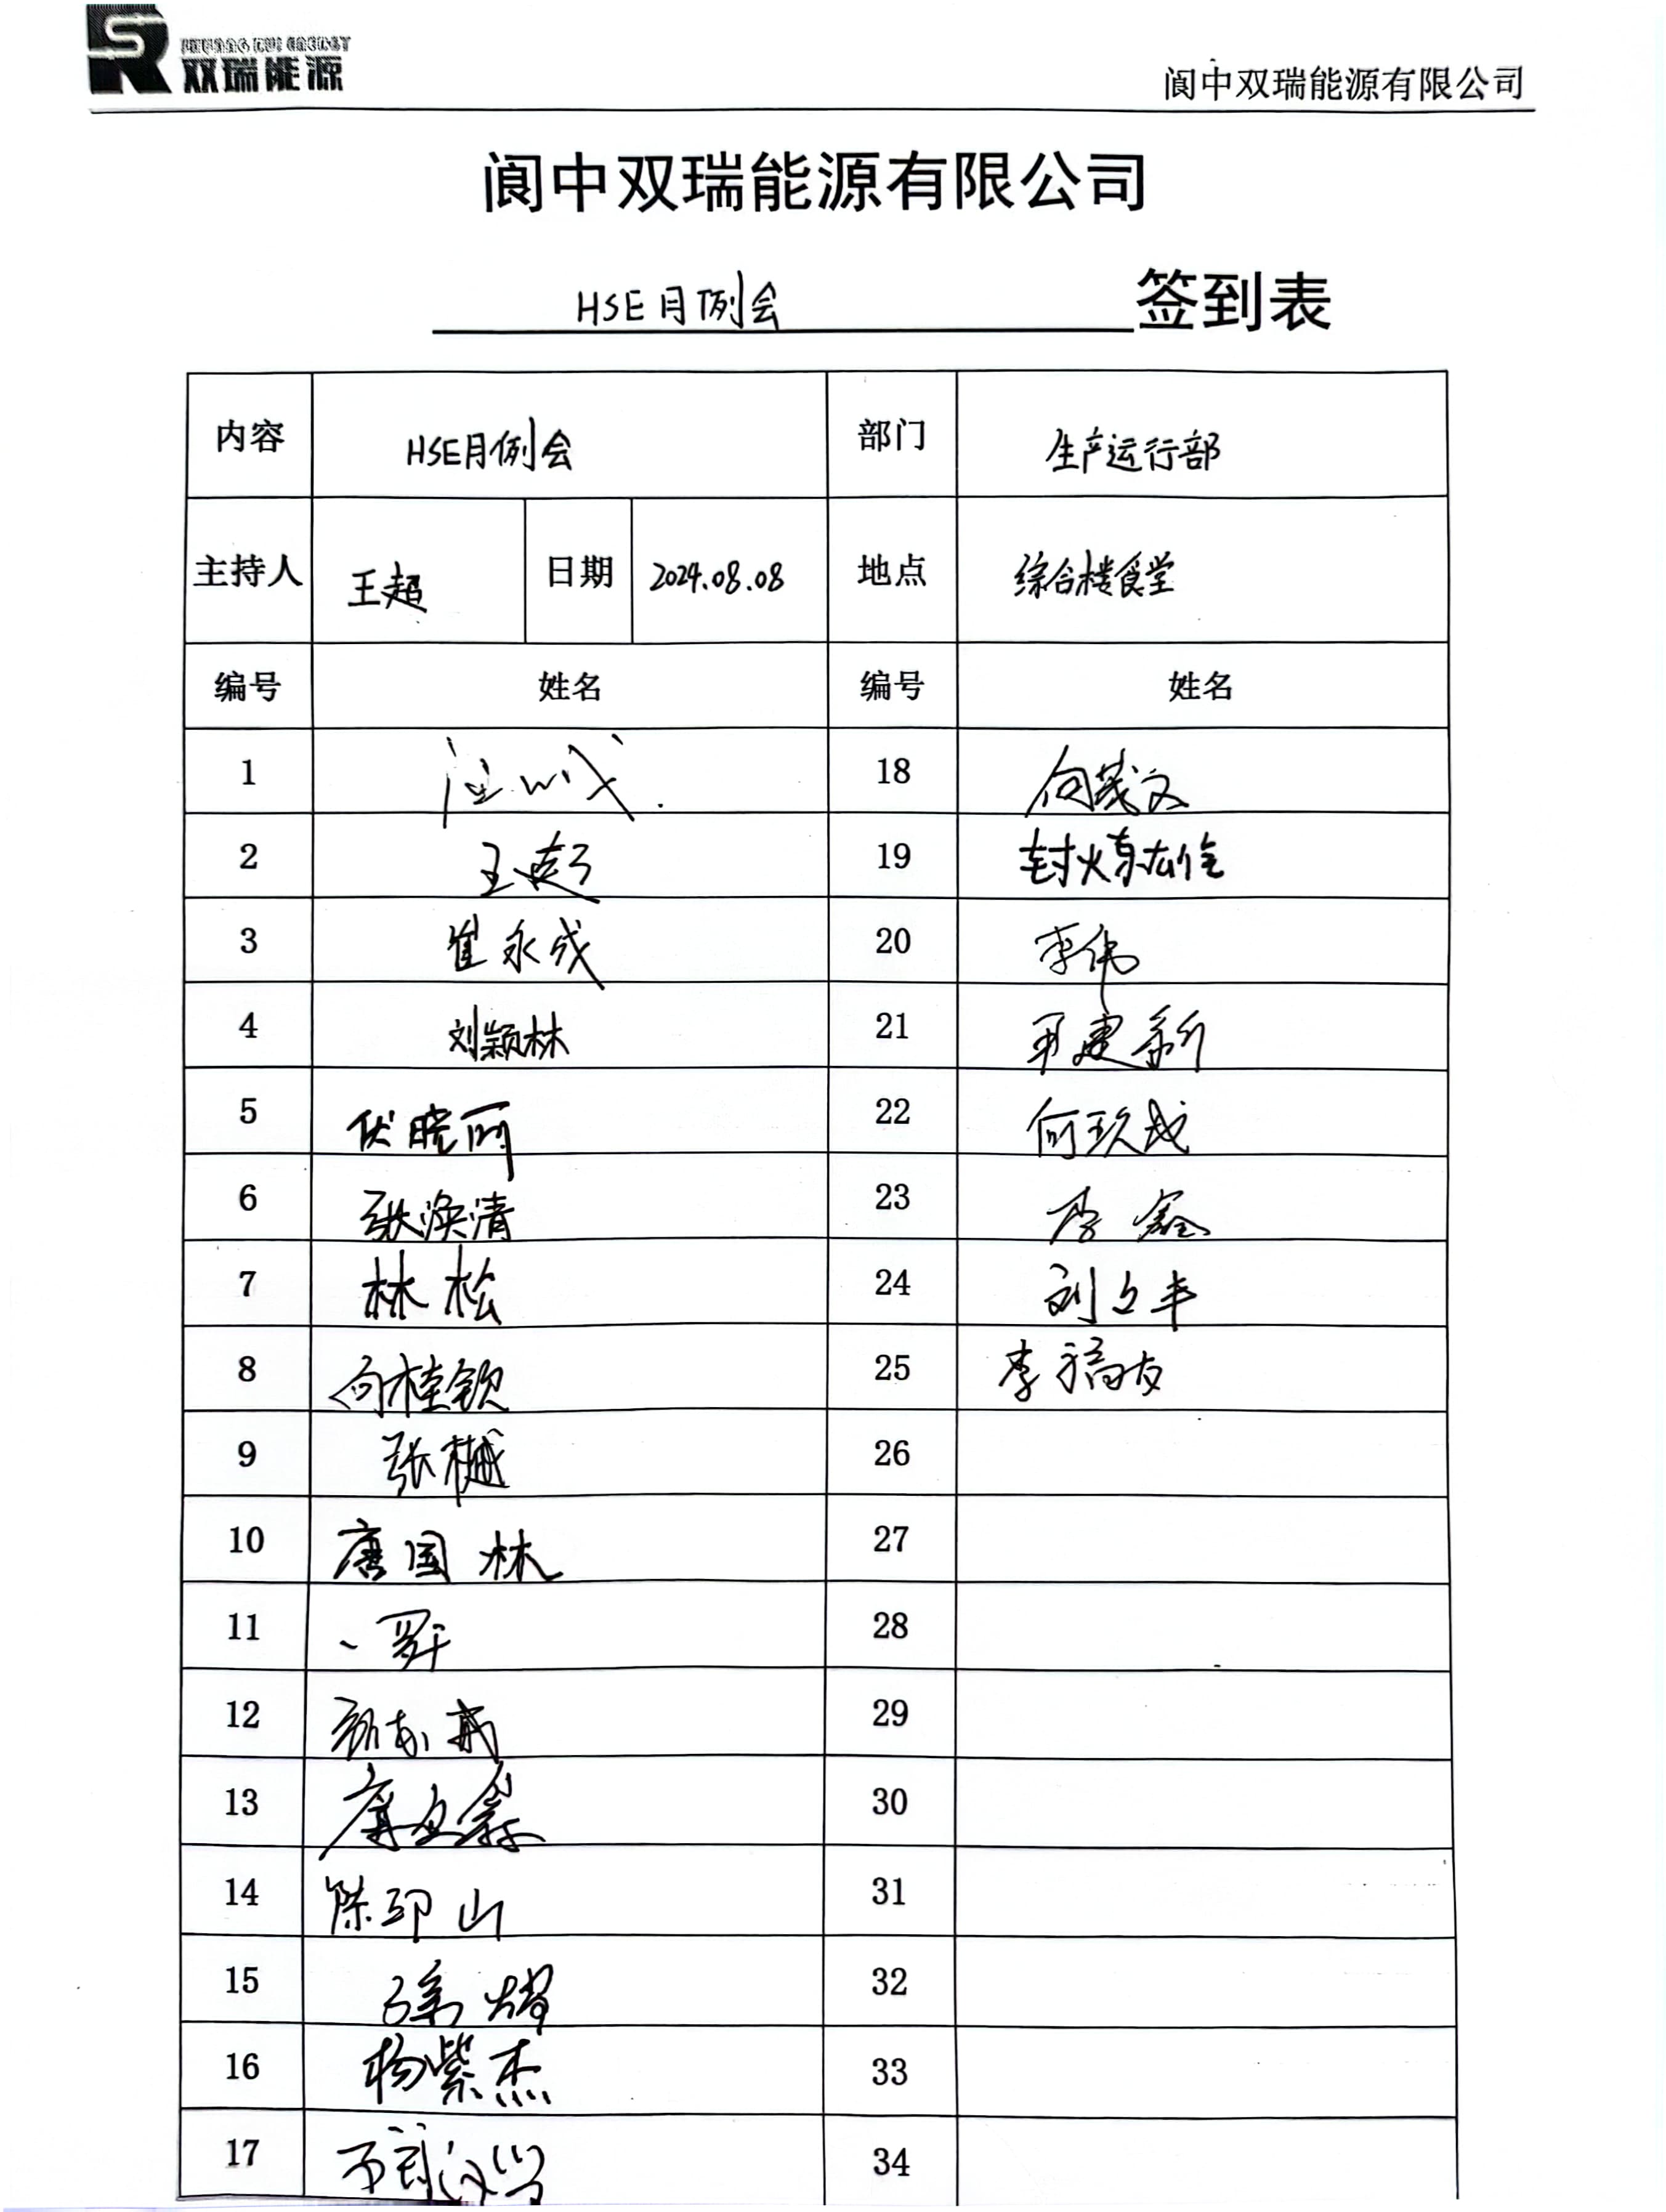 双瑞能源
阆中双瑞能源有限公司
阆中双瑞能源有限公司
HSE月例会 签到表
内容 HSE月例会 部门 生产运行部
主持人 王超 日期 2024.08.08 地点 综合楼食堂
编号 姓名 编号 姓名
1 18 向茂文
2 王超 19
3 崔永成 20 李伟
4 刘颖林 21
5 伏晓丽 22 何玖成
6 张涣清 23 李鑫
7 林松 24 刘文丰
8 向桂钦 25 李福友
9 张樾 26
10 唐国林 27
11 28
12 29
13 30
14 陈邛山 31
15 32
16 杨紫杰 33
17 34